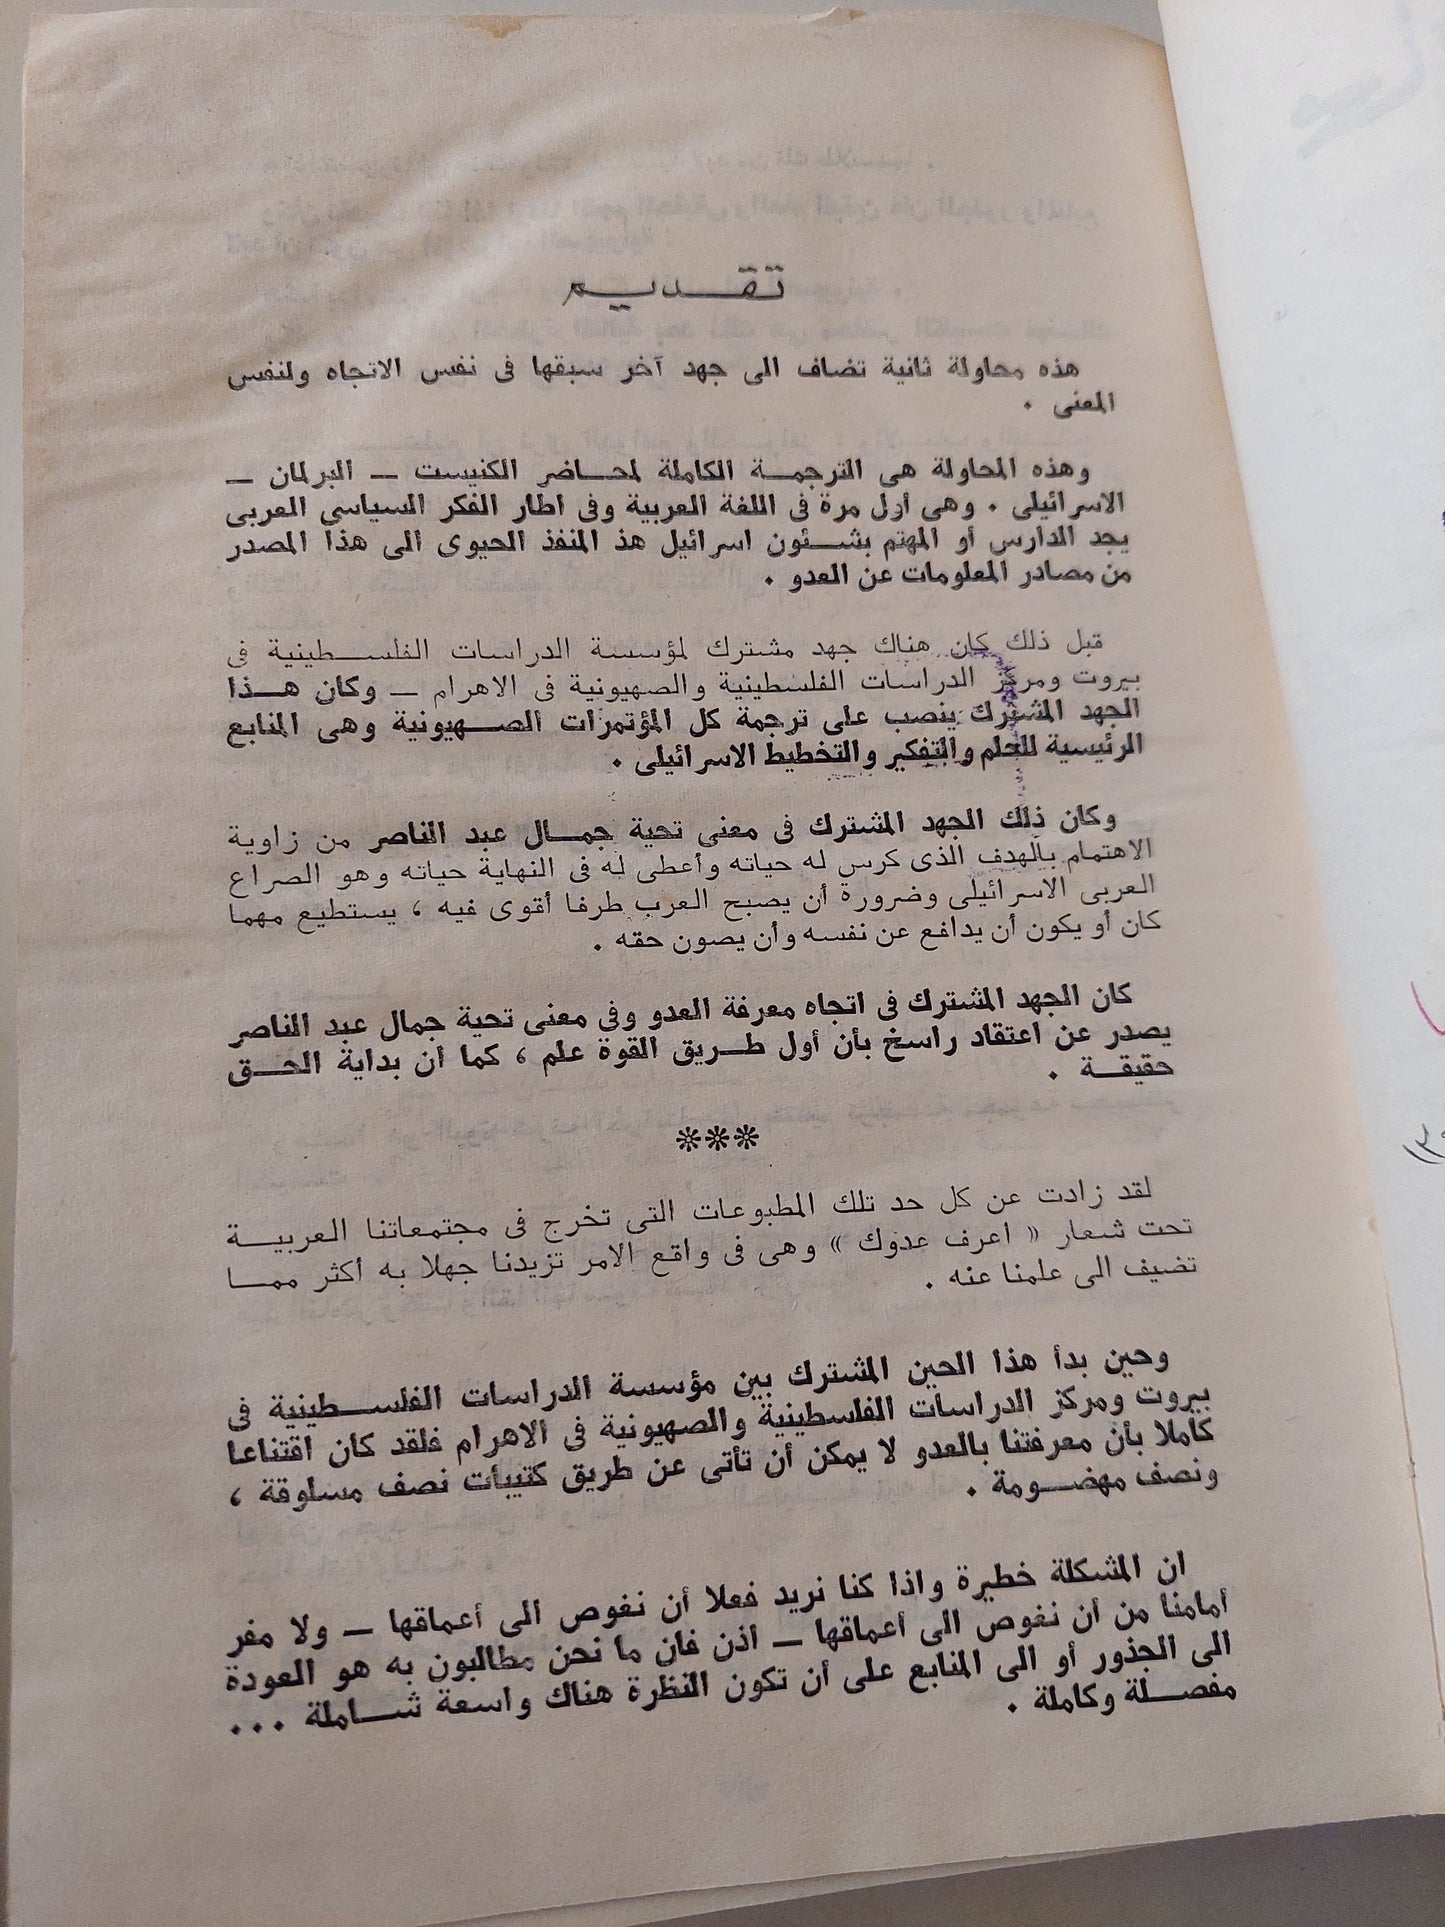 تقديم
هذه محاولة ثانية تضاف الى جهد آخر سبقها فى نفس الاتجاه ولنفس
المعنى .
وهذه المحاولة هى الترجمة الكاملة لمحاضر الكنيست — البرلمان —
الاسرائيلى . وهى أول مرة فى اللغة العربية وفى اطار الفكر السياسى العربى
يجد الدارس أو المهتم بشئون اسرائيل هذ المنفذ الحيوى الى هذا المصدر
من مصادر المعلومات عن العدو .
قبل ذلك كان هناك جهد مشترك لمؤسسة الدراسات الفلسطينية فى
بيروت ومركز الدراسات الفلسطينية والصهيونية فى الاهرام — وكان هذا
الجهد المشترك ينصب على ترجمة كل المؤتمرات الصهيونية وهى المنابع
الرئيسية للحلم والتفكير والتخطيط الاسرائيلى .
وكان ذلك الجهد المشترك فى معنى تحية جمال عبد الناصر من زاوية
الاهتمام بالهدف الذى كرس له حياته وأعطى له فى النهاية حياته وهو الصراع
العربى الاسرائيلى وضرورة أن يصبح العرب طرفا أقوى فيه ، يستطيع مهما
كان أو يكون أن يدافع عن نفسه وأن يصون حقه .
كان الجهد المشترك فى اتجاه معرفة العدو وفى معنى تحية جمال عبد الناصر
يصدر عن اعتقاد راسخ بأن أول طريق القوة علم ، كما أن بداية الحق
حقيقة .
***
لقد زادت عن كل حد تلك المطبوعات التى تخرج فى مجتمعاتنا العربية
تحت شعار « اعرف عدوك » وهى فى واقع الامر تزيدنا جهلا به أكثر مما
تضيف الى علمنا عنه .
وحين بدأ هذا الحين المشترك بين مؤسسة الدراسات الفلسطينية فى
بيروت ومركز الدراسات الفلسطينية والصهيونية فى الاهرام فلقد كان اقتناعا
كاملا بأن معرفتنا بالعدو لا يمكن أن تأتى عن طريق كتيبات نصف مسلوقة ،
ونصف مهضومة .
ان المشكلة خطيرة واذا كنا نريد فعلا أن نغوص الى أعماقها — ولا مفر
أمامنا من أن نغوص الى أعماقها — اذن فان ما نحن مطالبون به هو العودة
الى الجذور أو الى المنابع على أن تكون النظرة هناك واسعة شاملة ...
مفصلة وكاملة .